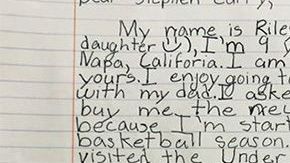 Dear Stephen Curry,
My name is Rile
daughter ☺), I'm 9
Napa, Califoria. I am
yours. I enjoy going t
with my dad. I aske
buy me the new
because I'm start
basketball season.
visited the Under